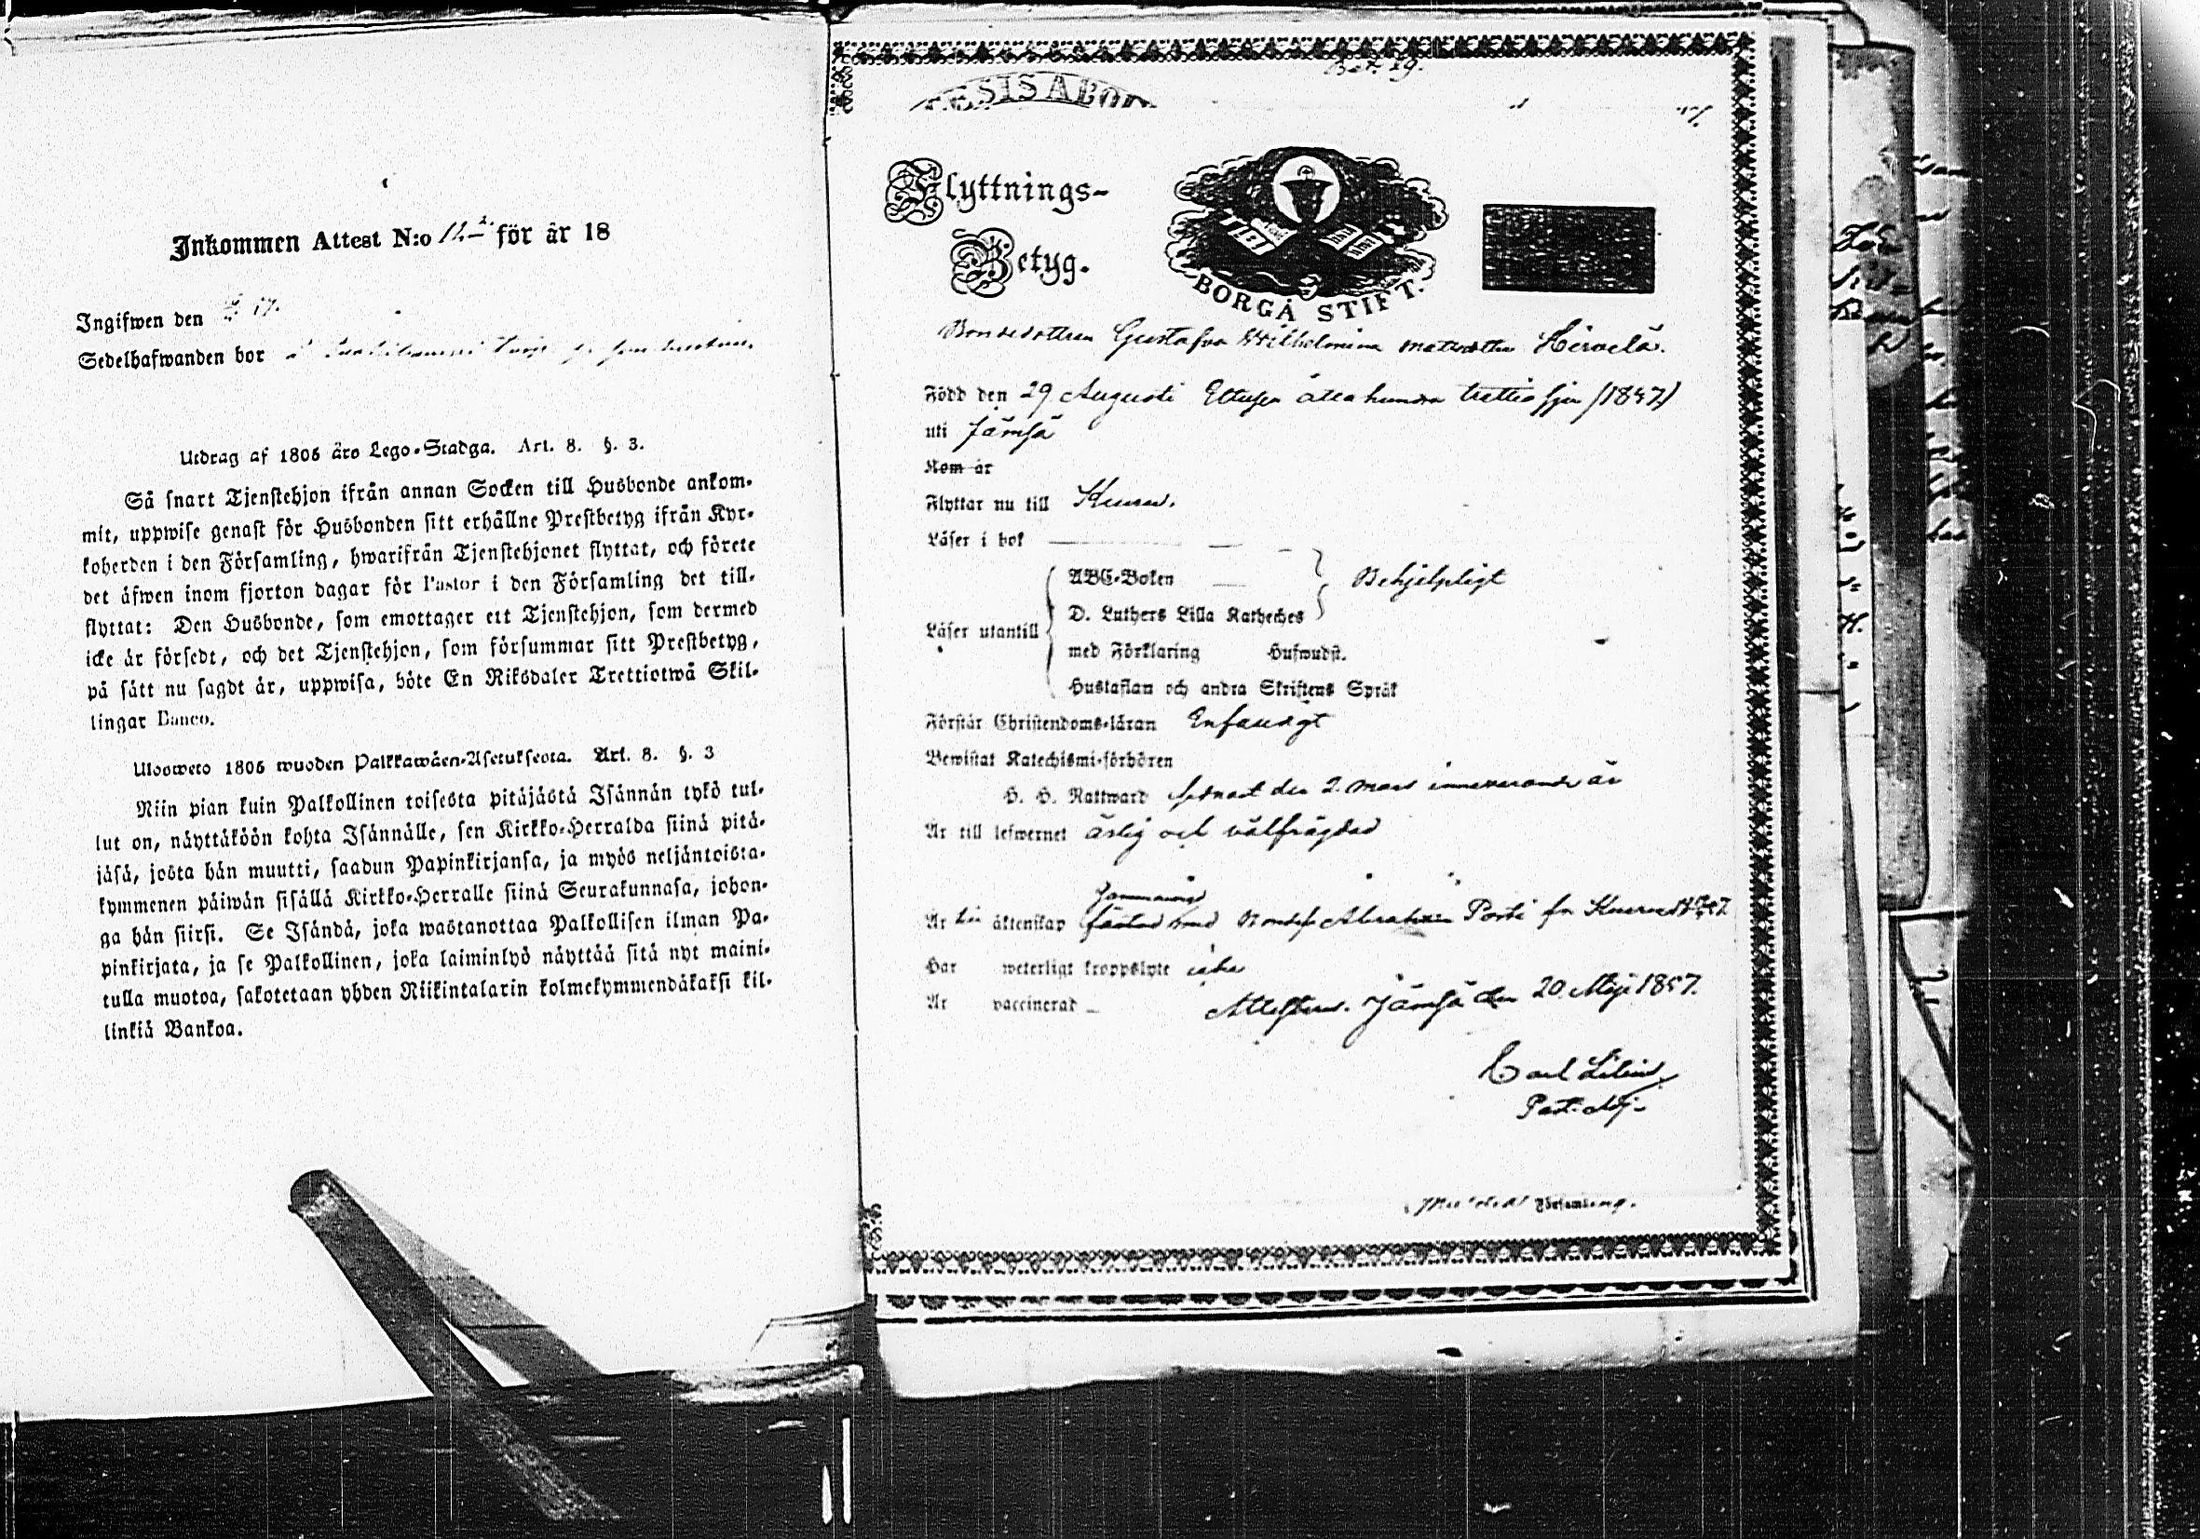 Inkommen Attest N:o för år 18
Ingifwen den
Sedelhafwanden bor
Utdrag af 1805 års Lego-Stadga. Art. 8. §. 3.
Så snart Tjenstehjon ifrån annan Socken till Husbonde ankom-
mit, uppwise genast för Husbonden sitt erhållne Prestbetyg ifrån Kyr-
koherden i den Församling, hwarifrån Tjenstehjonet flyttat, och förete
det äfwen inom fjorton dagar för Pastor i den Församling det till-
flyttat: Den Husbonde, som emottager ett Tjenstehjon, som dermed
icke är försedt, och det Tjenstehjon, som försummar sitt Prestbetyg,
på sätt nu sagdt är, uppwisa, böte En Riksdaler Trettiotwå Skil-
lingar Banco.
Ulosweto 1805 wuoden Palkkawäen-Asetuksesta. Art. 8. §. 3
Niin pian kuin Palkollinen toisesta pitäjästä Isännän tykö tul-
lut on, näyttäköön kohta Isännälle, sen Kirkko-Herralda siinä pitä-
jäsä, josta hän muutti, saadun Papinkirjansa, ja myös neljäntoista-
kymmenen päiwän sisällä Kirkko-Herralle siinä Seurakunnasa, johon-
ga hän siirsi. Se Isändä, joka wastanottaa Palkollisen ilman Pa-
pinkirjata, ja se Palkollinen, joka laiminlyö näyttää sitä nyt maini-
tulla muotoa, sakotetaan yhden Riikintalarin kolmekymmendäkaksi kil-
linkiä Bankoa.
Bet. 29.
ESIS ABO
Flyttnings-
Betyg.
BORGÅ STIFT.
Bondedottren Gustafva Wilhelmina Matsdotter Hirvelä.
Född den 29 Augusti Ettusen åtta hundra trettio sju (1837)
uti Jämsä
Kom år
Flyttar nu till Keuru.
Läser i bok
ABC-Boken
Behjelpligt
D. Luthers Lilla Katheches
Läser utantill
med Förklaring Hufwudst.
Hustaflan och andra Skriftens Språk
Förstår Christendoms-läran Enfaldigt
Bewistat Katechismi-förhören
H. H. Nattward sednast den 2 Mars innevarande år
Är till lefwernet ärlig och välfrägdad
Är till äktenskap med Bondes. Abraham fr Keuru
Har weterligt kroppslyte icke
Är vaccinerad
Attesteras. Jämsä den 20 Maji 1857.
Carl Lilius
Past. Adj.
Församling.